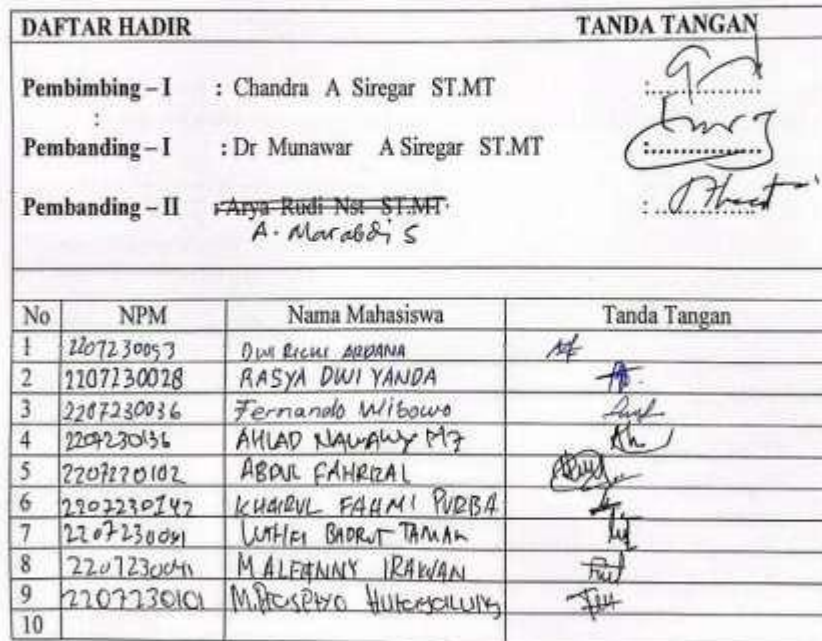 DAFTAR HADIR TANDA TANGAN
Pembimbing – I : Chandra A Siregar ST.MT :..............
:
Pembanding – I : Dr Munawar A Siregar ST.MT :..............
Pembanding – II : Arya Rudi Nst ST.MT :..............
A. Marabdi S
No NPM Nama Mahasiswa Tanda Tangan
1 2207230053 DWI RICHI ARDANA
2 2207230028 RASYA DWI YANDA
3 2207230036 Fernando Wibowo
4 2207230136 AHLAD
5 2207220102 ABDUL FAHRIZAL
6 2207230142 KHAIRUL FAHMI PURBA
7 LUTHFI BADRUT TAMAM
8 2207230041 M ALFANNY IRAWAN
9 2207230101 M.
10